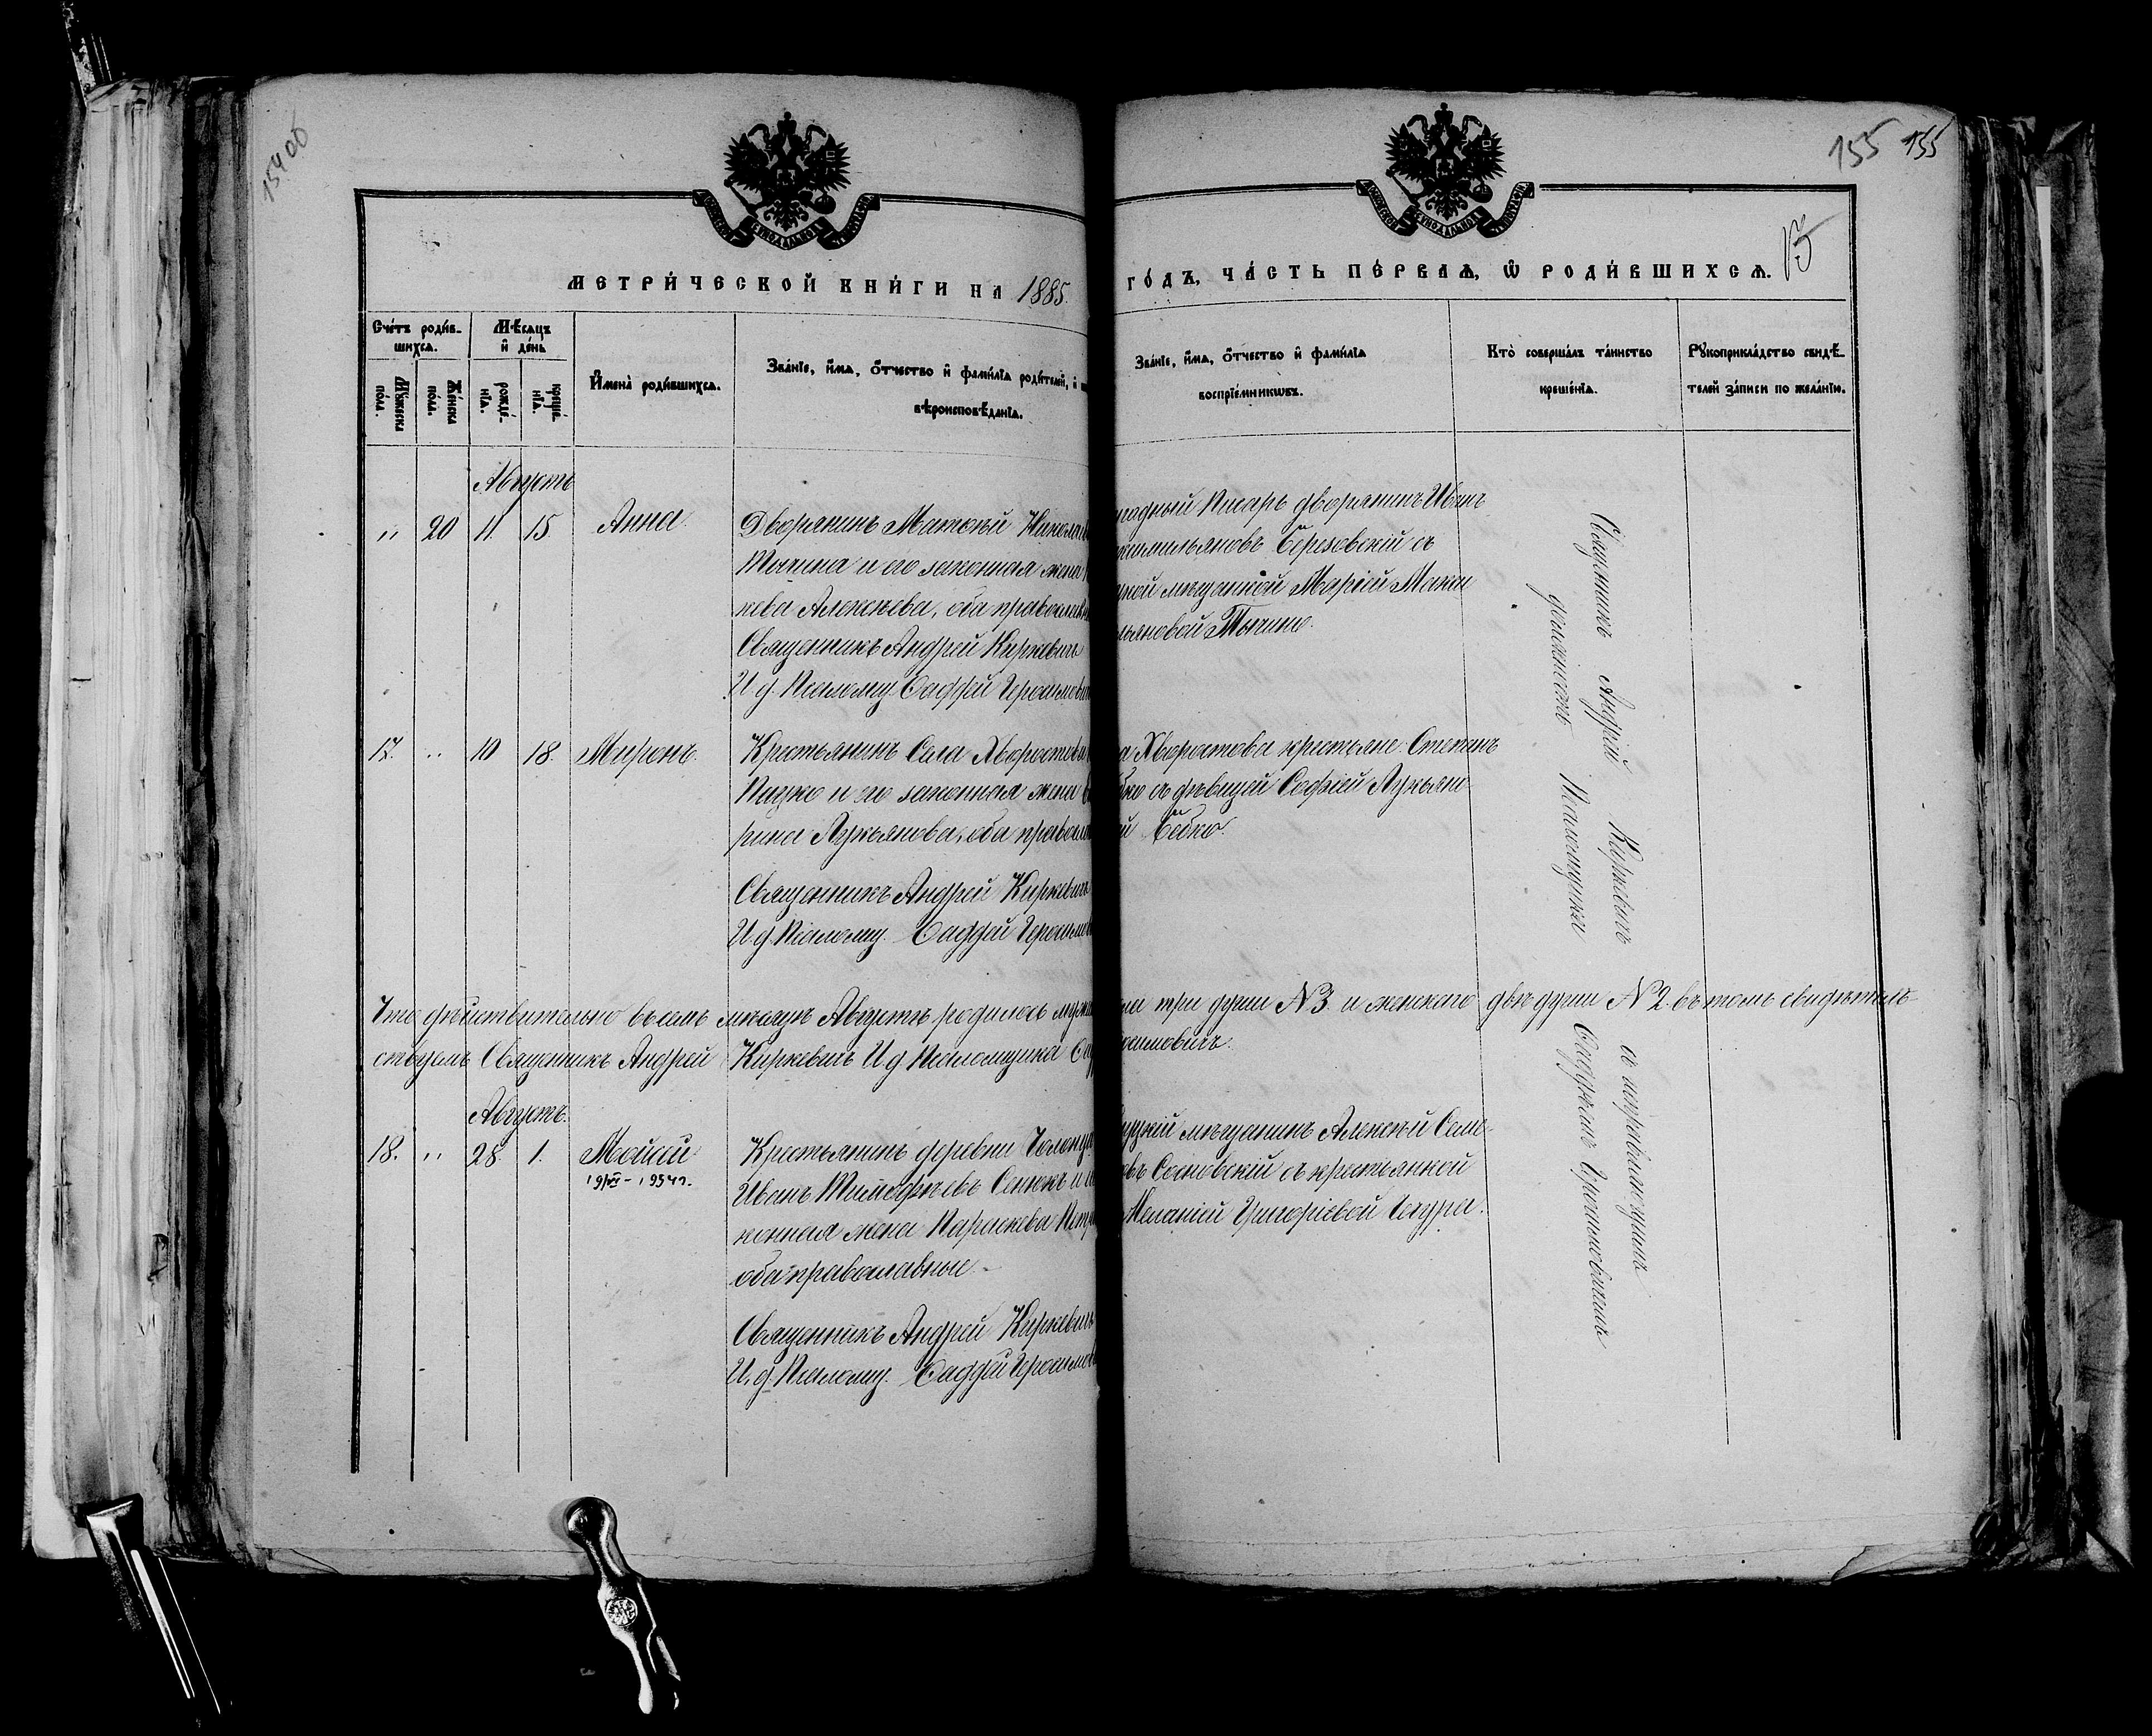 154 об
155 155
15
МЕТРИ́ЧЕСКОЙ КНИ́ГИ НА 1885.
ГО́ДЪ, ЧА́СТЬ ПЕ́РВАѦ, Ѡ҆ РОДИ́ВШИХСѦ.
Сче́тъ роди́в-
шихсѧ.
Мꙋ́жеска по́ла.
Же́нска по́ла.
Мѣ́сѧцъ
и҆ де́нь
рожде́-нїѧ.
креще́-нїѧ.
И҆мена̀ роди́вшихсѧ.
Зва́нїе, и҆́мѧ, ѻ҆́тчество и҆ фамѝлїѧ роди́телей, и҆
вѣроисповѣ́данїѧ.
Зва́нїе, и҆́мѧ, ѻ҆́тчество и҆ фамѝлїѧ
воспрїе́мникѡвъ.
Кто̀ соверша́лъ та́инство
креще́нїѧ.
Рꙋкоприкла́дство свидѣ́-
телей за́писи по жела́нїю.
Августъ
" 20 11. 15. Анна.
Дворянинъ Матвѣй Никола
Тычина и его законная жена
кева Алексѣева, оба православ
Священникъ Андрей Киркевичъ
И. д. Псаломщ. Фаддей Герасимови
писарь дворянинъ Иванъ
симильяновъ Березовскій съ
мѣщанкой Маріей Макси
льяновой Тычино.
17. " 10 18. Миронъ.
Крестьянинъ Села Хворостова
и его законная жена
рина Лукьянова, оба правосла
Священникъ Андрей Киркевичъ
И. д. Псаломщ. Фаддей Герасимо
а Хворостова крестьяне: Степанъ
съ дѣвицей Софіей Лукьяно
й Бобко.
Что дѣйствительно въ семъ мѣсяцѣ Августѣ родилось муже
три души №3. и женскаго двѣ души №2. въ томъ свидѣтель
ствуемъ Священникъ Андрей Киркевичъ И. д. Псаломщика Фад
расимовичъ.
Августъ.
18. " 28. 1. Мойсей
19/VI - 1954 г.
Крестьянинъ деревни
Иванъ Тимофѣевъ Сенюкъ и
конная жена Параскева Петр
оба православные.
Священникъ Андрей Киркевичъ
И. д. Псаломщ. Фаддей Герасимов
луцкій мѣщанинъ Алексѣй Семе
овъ Сосновскій съ крестьянкой
Меланіей Григоріевой
Священникъ Андрей Киркевичъ съ исправляющимъ
должность Псаломщика Фаддѣемъ Герасимовичемъ